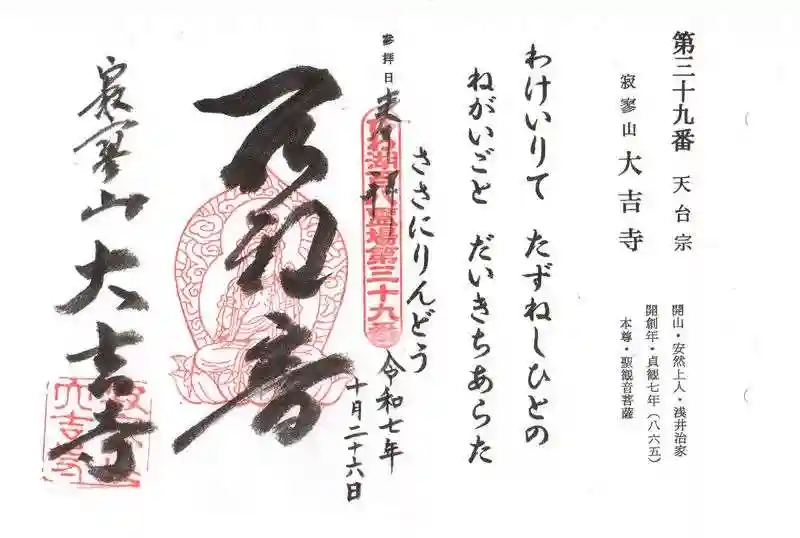 第三十九番 天台宗
寂寥山 大吉寺
開山・安然上人・浅井治家
開創年・貞観七年(八六五)
本尊・聖観音菩薩
わけいりて たずねしひとの
ねがいごと だいきちあらた
ささにりんどう
参拝日
奉拝
びわ湖百八霊場第三十九番
令和七年
十月二十六日
寂寥山 大吉寺